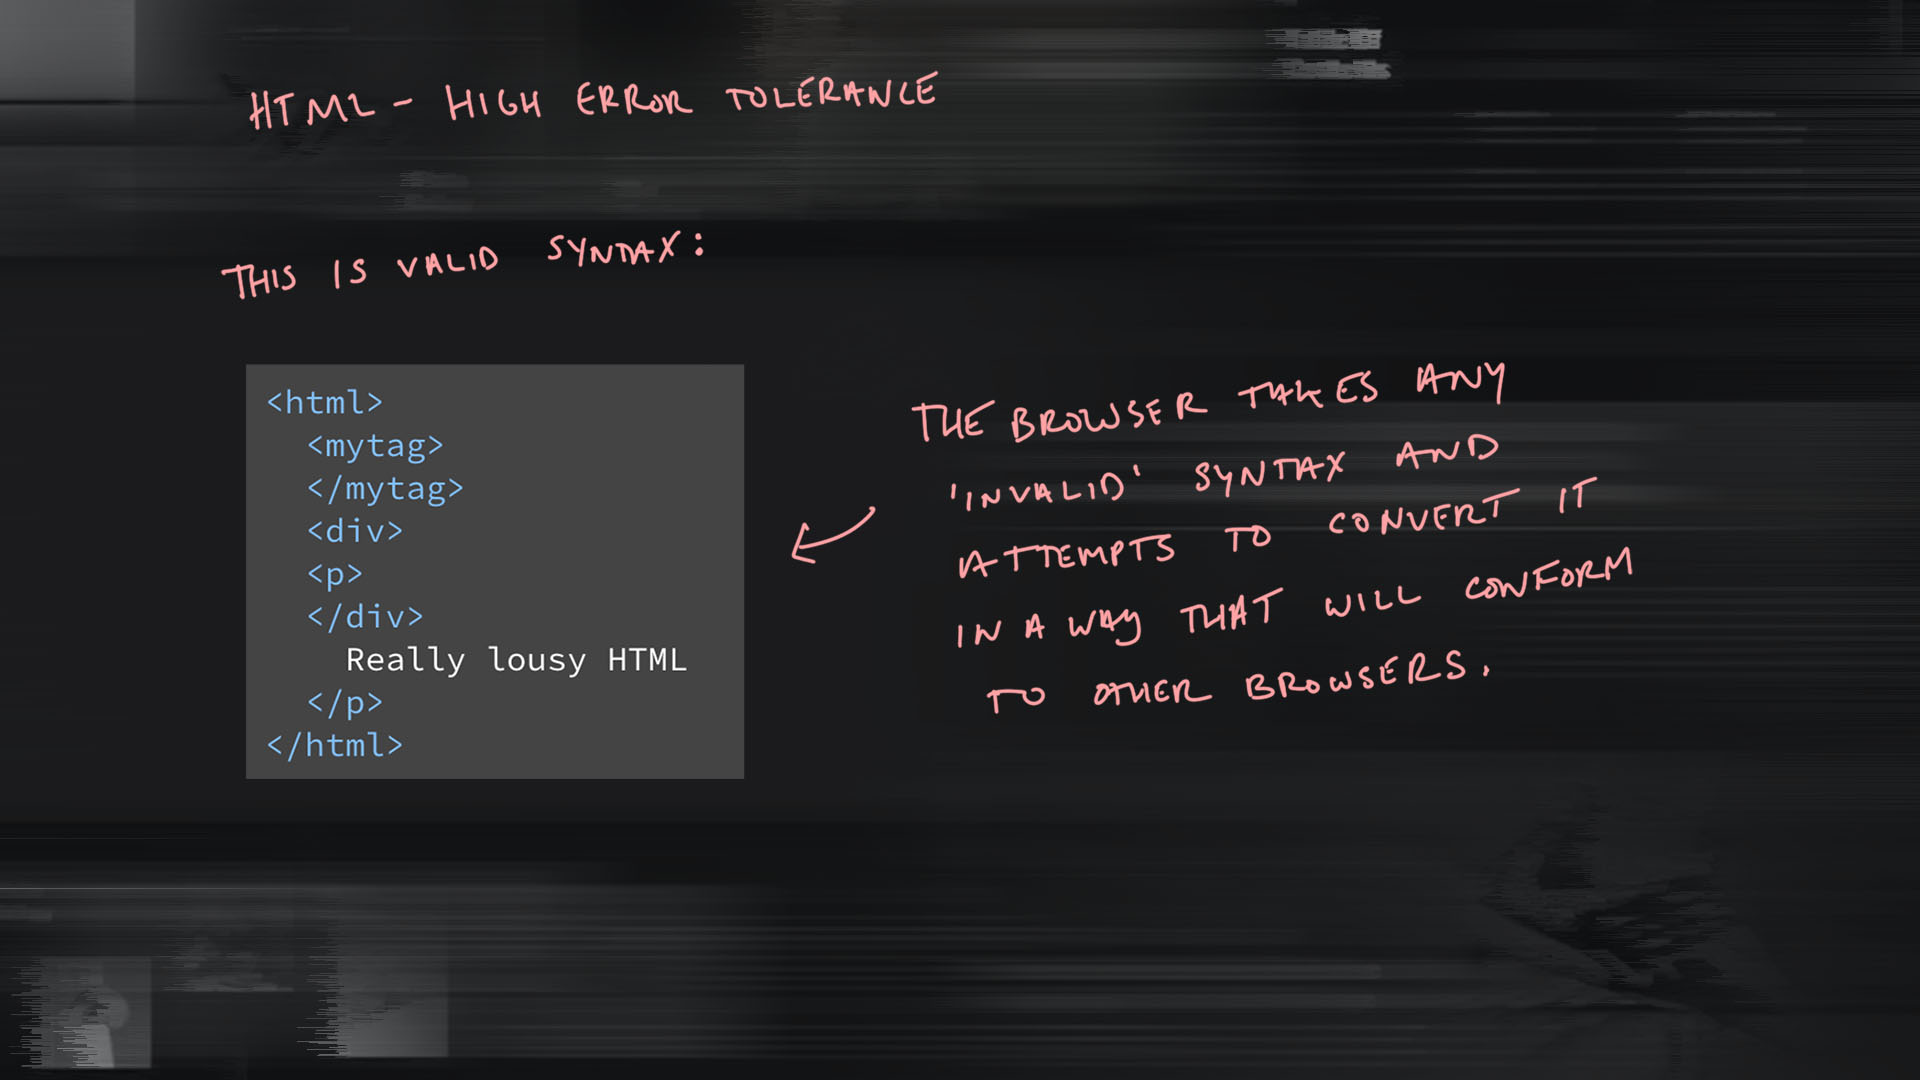 HTML - HIGH ERROR TOLERANCE
THIS IS VALID SYNTAX:
<html>
<mytag>
</mytag>
<div>
<p>
</div>
Really lousy HTML
</p>
</html>
THE BROWSER TAKES ANY
'INVALID' SYNTAX AND
ATTEMPTS TO CONVERT IT
IN A WAY THAT WILL CONFORM
TO OTHER BROWSERS.